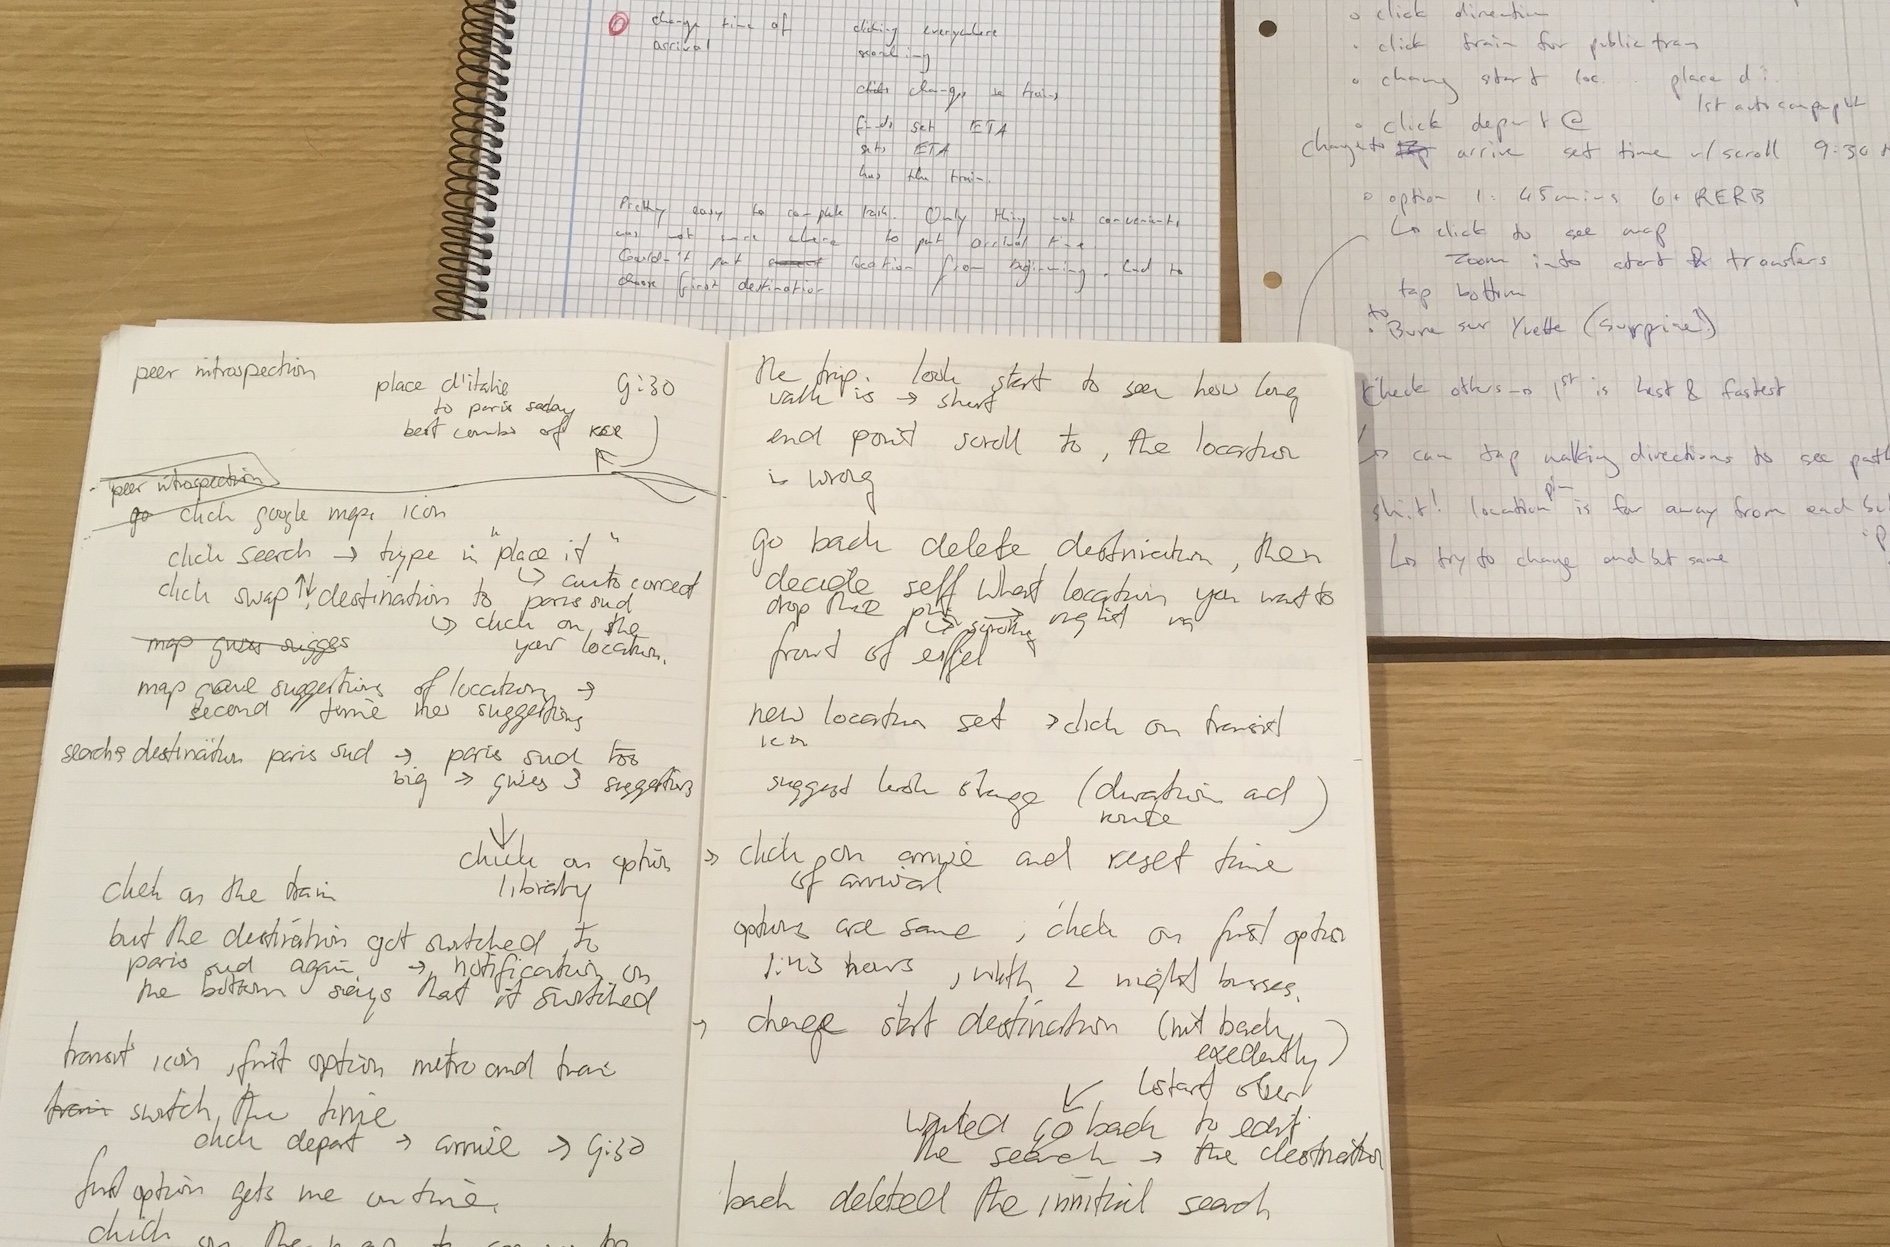 change time of
arrival
clicking everywhere
changes to trains
finds set ETA
sets ETA
has the train.
Pretty easy to complete task. Only thing not convenient,
was not sure where to put arrival time.
Couldn't put location from beginning. had to
choose first destination
click direction
click train for public tran
chang start loc. place d'i.
1st auto
click depart @
change to arrive set time w/ scroll 9:30
option 1: 45 mins 6 + RERB
click to see map
zoom into start & transfers
tap bottom
to Bure sur Yvette (surprise!)
Check others → 1st is best & fastest
can tap walking directions to see path
shit! location pin is far away from end
try to change end but same
peer introspection
place d'italie 9:30
to paris saclay
best combo of
peer introspection
go click google maps icon
click search → type in "place it"
↳ auto correct
click swap ↑↓, destination to paris sud
↳ click on the
your location.
map gives sugges
map gave suggestions of location →
second time suggestions
search destination paris sud → paris sud too
big → gives 3 suggestions
↓
click on option
library
click on the train
but the destination got switched to
paris sud again → notification on
the bottom says that it switched
transit icon, first option metro and train
train switch, the time
click depart → arrive → 9:30
first option gets me on time.
click on the
the trip. look start to see how long
walk is → short
end point scroll to, the location
is wrong
go back delete destination, then
decide self what location you want to
drop the pin → right in
↳ scrolling
front of eiffel
new location set → click on transit
icn
suggest (duration and
route)
→ click on arrive and reset time
of arrival
options are same, click on first option
1:43 hours, with 2 night busses.
→ change start destination (hit back
)
↳ start over
↙
wanted go back to edit
the search → the destination
back deleted the innitial search